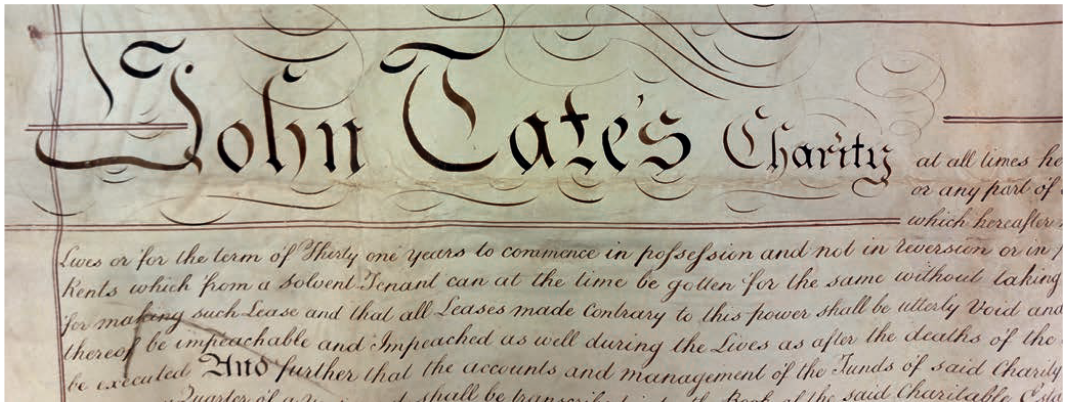 John Tate's Charity at all times
or any part of
which hereafter
Lives or for the term of Thirty one years to commence in poſseſsion and not in reversion or in
Rents which from a Solvent Tenant can at the time be gotten for the same without taking
for making such Lease and that all Leases made Contrary to this power shall be utterly Void and
thereof be impeachable and Impeached as well during the Lives as after the deaths of the
be executed And further that the accounts and management of the Funds of said Charity
Quarter of a shall be transcribed the Book of the said Charitable